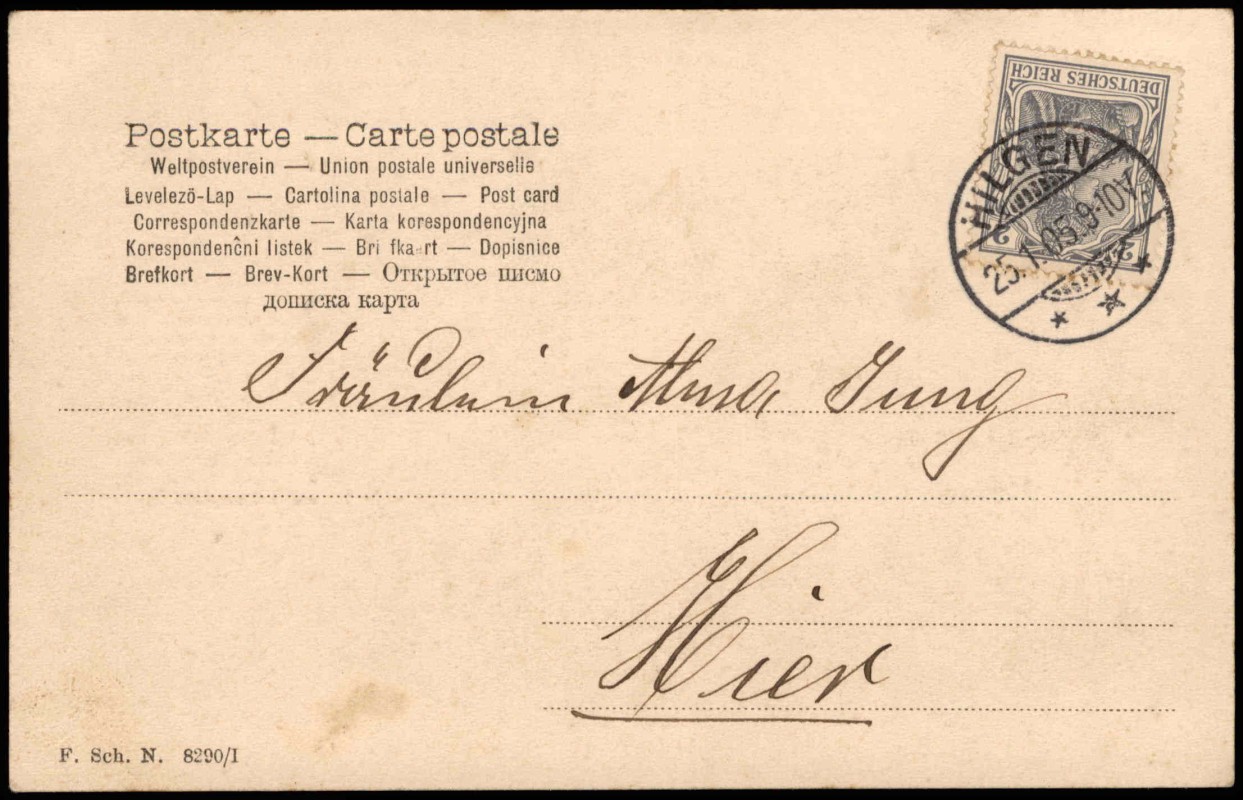 Postkarte — Carte postale
Weltpostverein — Union postale universelle
Levelezö-Lap — Cartolina postale — Post card
Correspondenzkarte — Karta korespondencyjna
Korespondenčni listek — Bri fka rt — Dopisnice
Brefkort — Brev-Kort — Открытое писмо
дописка карта
DEUTSCHES REICH
2 2
HILGEN
25.1.05.9-10V.
Fräulein Alma Jung
Hier
F. Sch. N. 8290/I